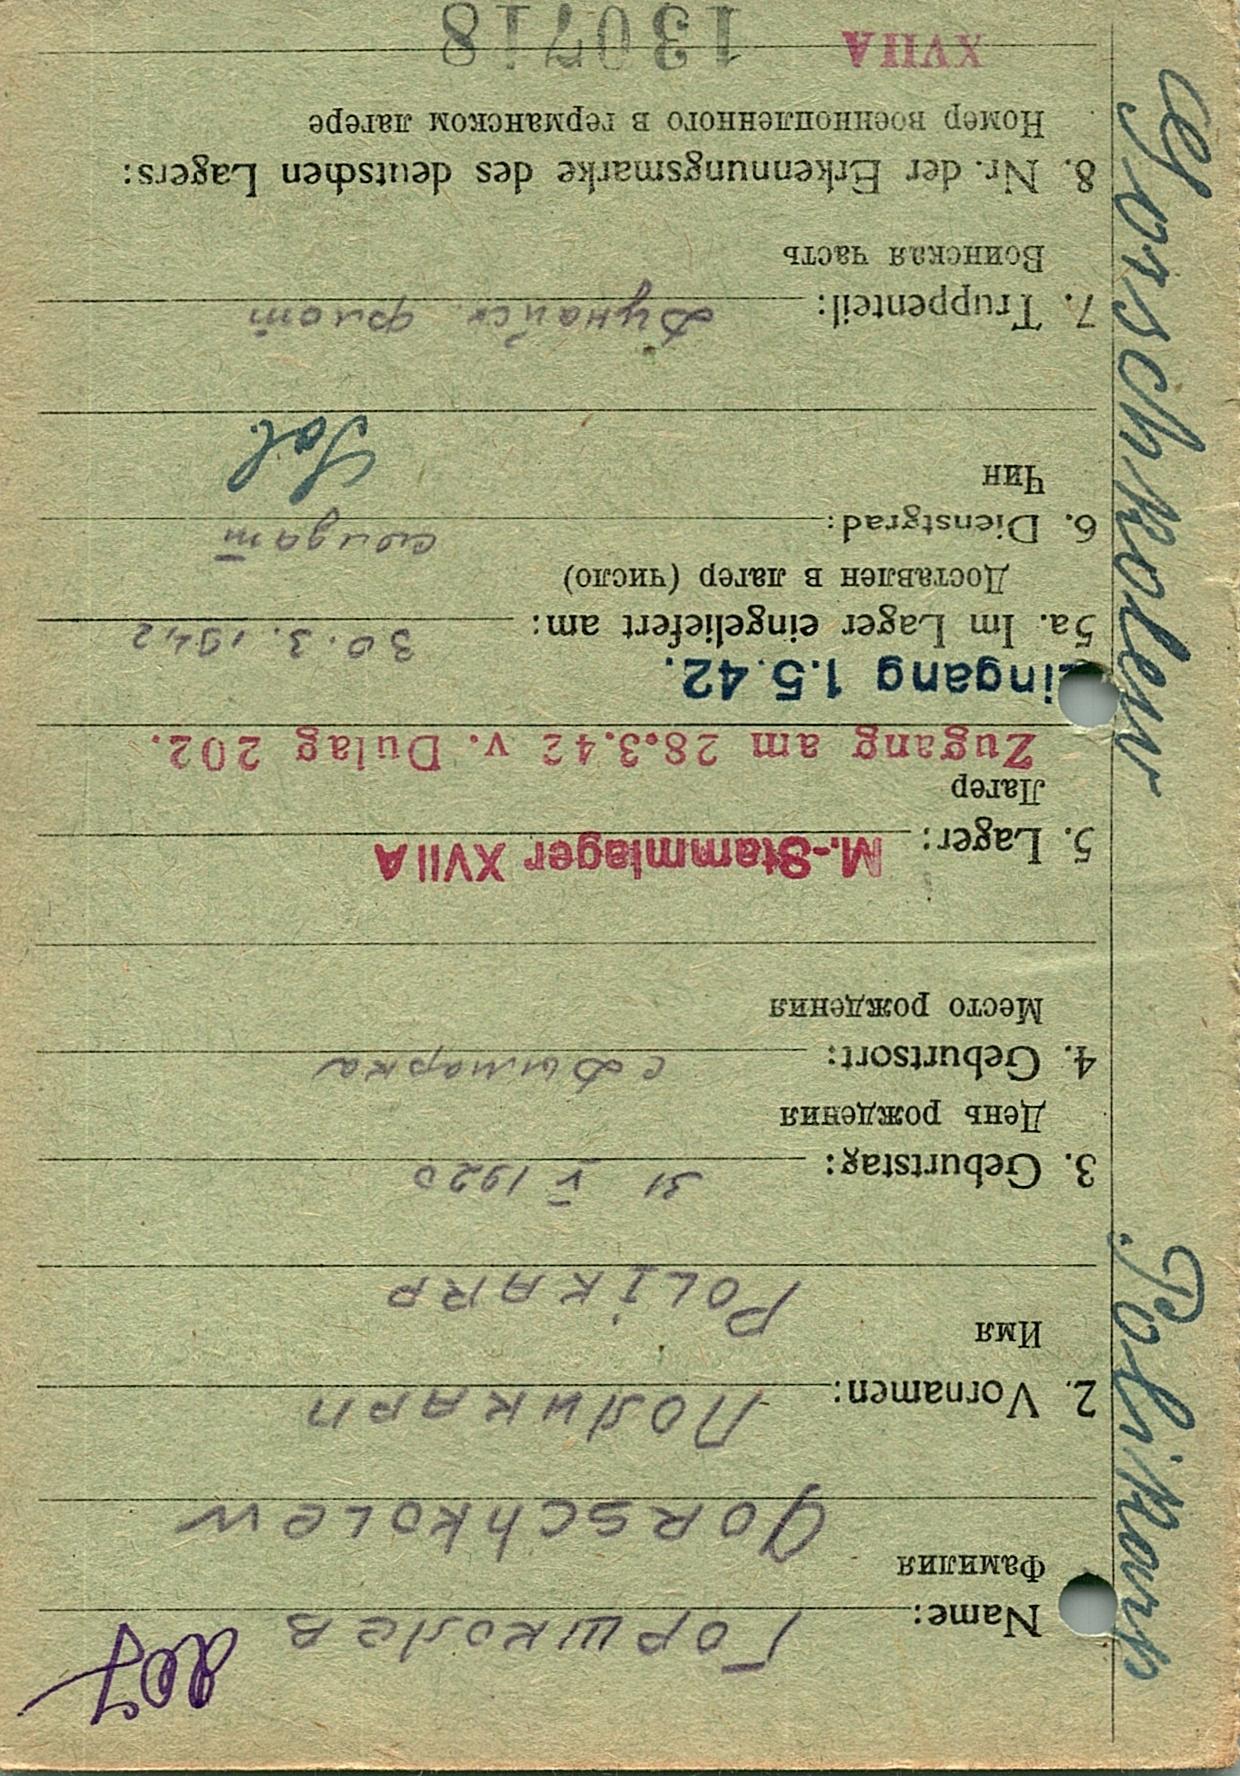 207
Name: Горшколев
Фамилия
Gorschkolew
2. Vornamen: Поликарп
Имя
Polikarp
3. Geburtstag: 31 V 1920
День рождения
4. Geburtsort: с Димарка
Место рождения
5. Lager: M.-Stammlager XVII A
Лагер
Zugang am 28.3.42 v. Dulag 202.
Eingang 1.5.42.
5a. Im Lager eingeliefert am: 30.3.1942
Доставлен в лагер (число)
6. Dienstgrad: солдат
Чин
Sol.
7. Truppenteil: Дунайск. флот
Воинская часть
8. Nr. der Erkennungsmarke des deutschen Lagers:
Номер военнопленного в германском лагере
XVIIA 130718
Gorschkolew Polikarp